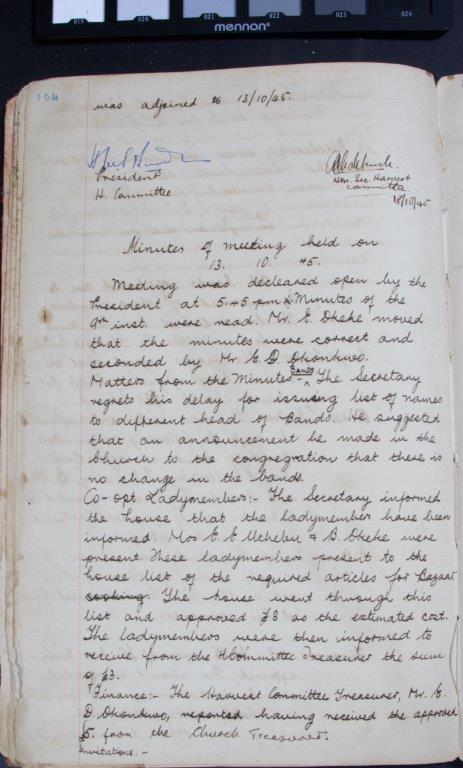 019 020 021 022 023 024
mennon®
104
was adjoined to 13/10/45.
President
H. Committee
Hon. Sec. Harvest
Committee.
18/10/45
Minutes of meeting held on
13. 10. 45.
Meeting was decleared open by the
President at 5.45 p.m. Minutes of the
9th inst. were read. Mr. E. Okeke moved
that the minutes were correct and
seconded by Mr. E. D. Okonkwo.
Matters from the Minutes:- BANDS The Secretary
regrets his delay for issuing list of names
to different head of Bands. He suggested
that an announcement be made in the
Church to the congregation that there is
no change in the bands.
Co-opt Ladymembers:- The Secretary informed
the house that the ladymembers have been
informed. Mrs E. E. Uchebu & B. Okeke were
present. These ladymembers present to the
house list of the required articles for Bazaar
cooking. The house went through this
list and approved £3 as the estimated cost.
The ladymembers were then informed to
receive from the H Committee Treasurer the sum
of £3.
Finance:- The Harvest Committee Treasurer, Mr. E.
D. Okonkwo, reported having received the approved
£5. from the Church Treasurer.
Invitations:-